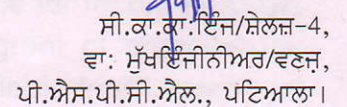 ਸੀ.ਕਾ.ਕਾ.ਇੰਜ/ਸ਼ੇਲਜ਼-4,
ਵਾ: ਮੁੱਖਇੰਜੀਨੀਅਰ/ਵਣਜ਼,
ਪੀ.ਐਸ.ਪੀ.ਸੀ.ਐਲ., ਪਟਿਆਲਾ।